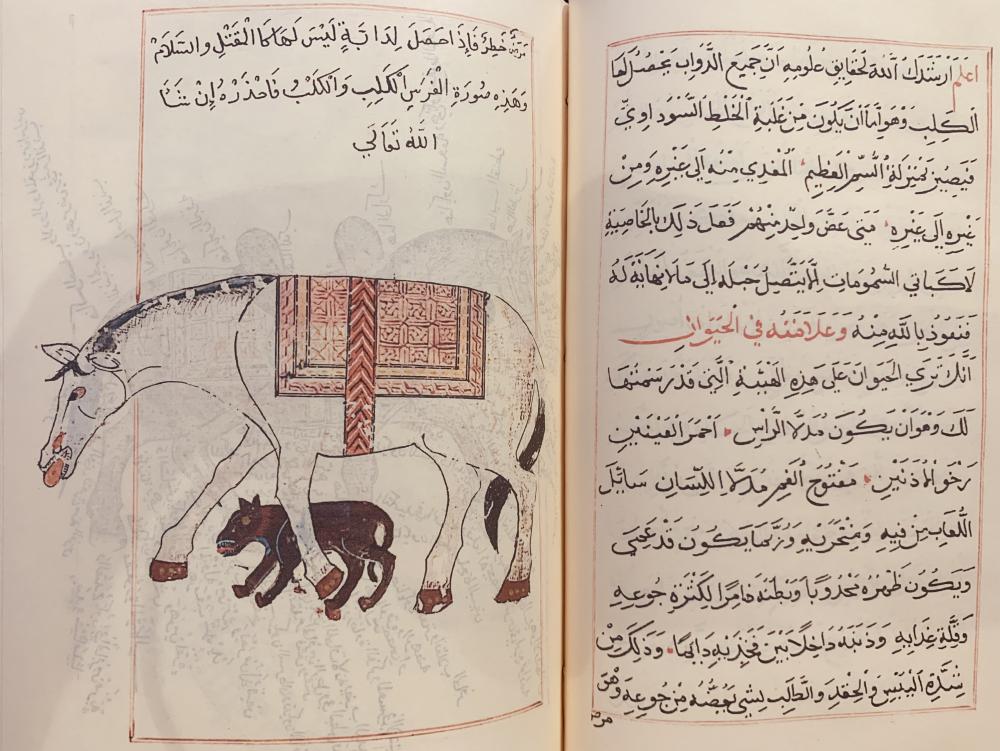 اعلم أرشدك الله لحقايق علومه ان جميع الدواب يحصل لها
الكلب وهو اما ان يكون من غلبة الخلط السوداوي
فيصير بمنزلة السم العظيم المعدي منه الى غيره ومن
غيره الى غيره متى عض واحد منهم فعل ذلك بالخاصية
لا كباقي السمومات لا يتصل حبله الى ما لا نهاية له
فنعوذ بالله منه وعلامته في الحيوان
انك ترى الحيوان على هذه الهيئة التي قد رسمتها
لك وهو ان يكون مدلا الراس احمر العينين
رخو الاذنين مفتوح الفم مدلا اللسان سائل
اللعاب من فيه ومنخريه وربما يكون قد عمي
ويكون ظهره محدوبا وبطنه ضامرا لكثرة جوعه
وقلة غذايه وذنبه داخلا بين فخذيه دايما وذلك من
شدة اليبس والحقد والطالب لشي يعضه من جوعه وهو
مرض
مرض خطر فاذا حصل لدابة ليس لها الا القتل والسلام
وهذه صورة الفرس الكلب والكلب فاحذره إن شا
الله تعالي